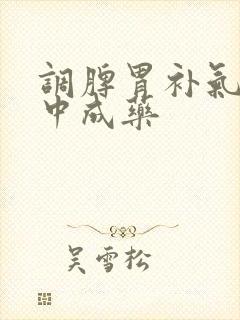 調脾胃补氣
中成藥
吴雪松